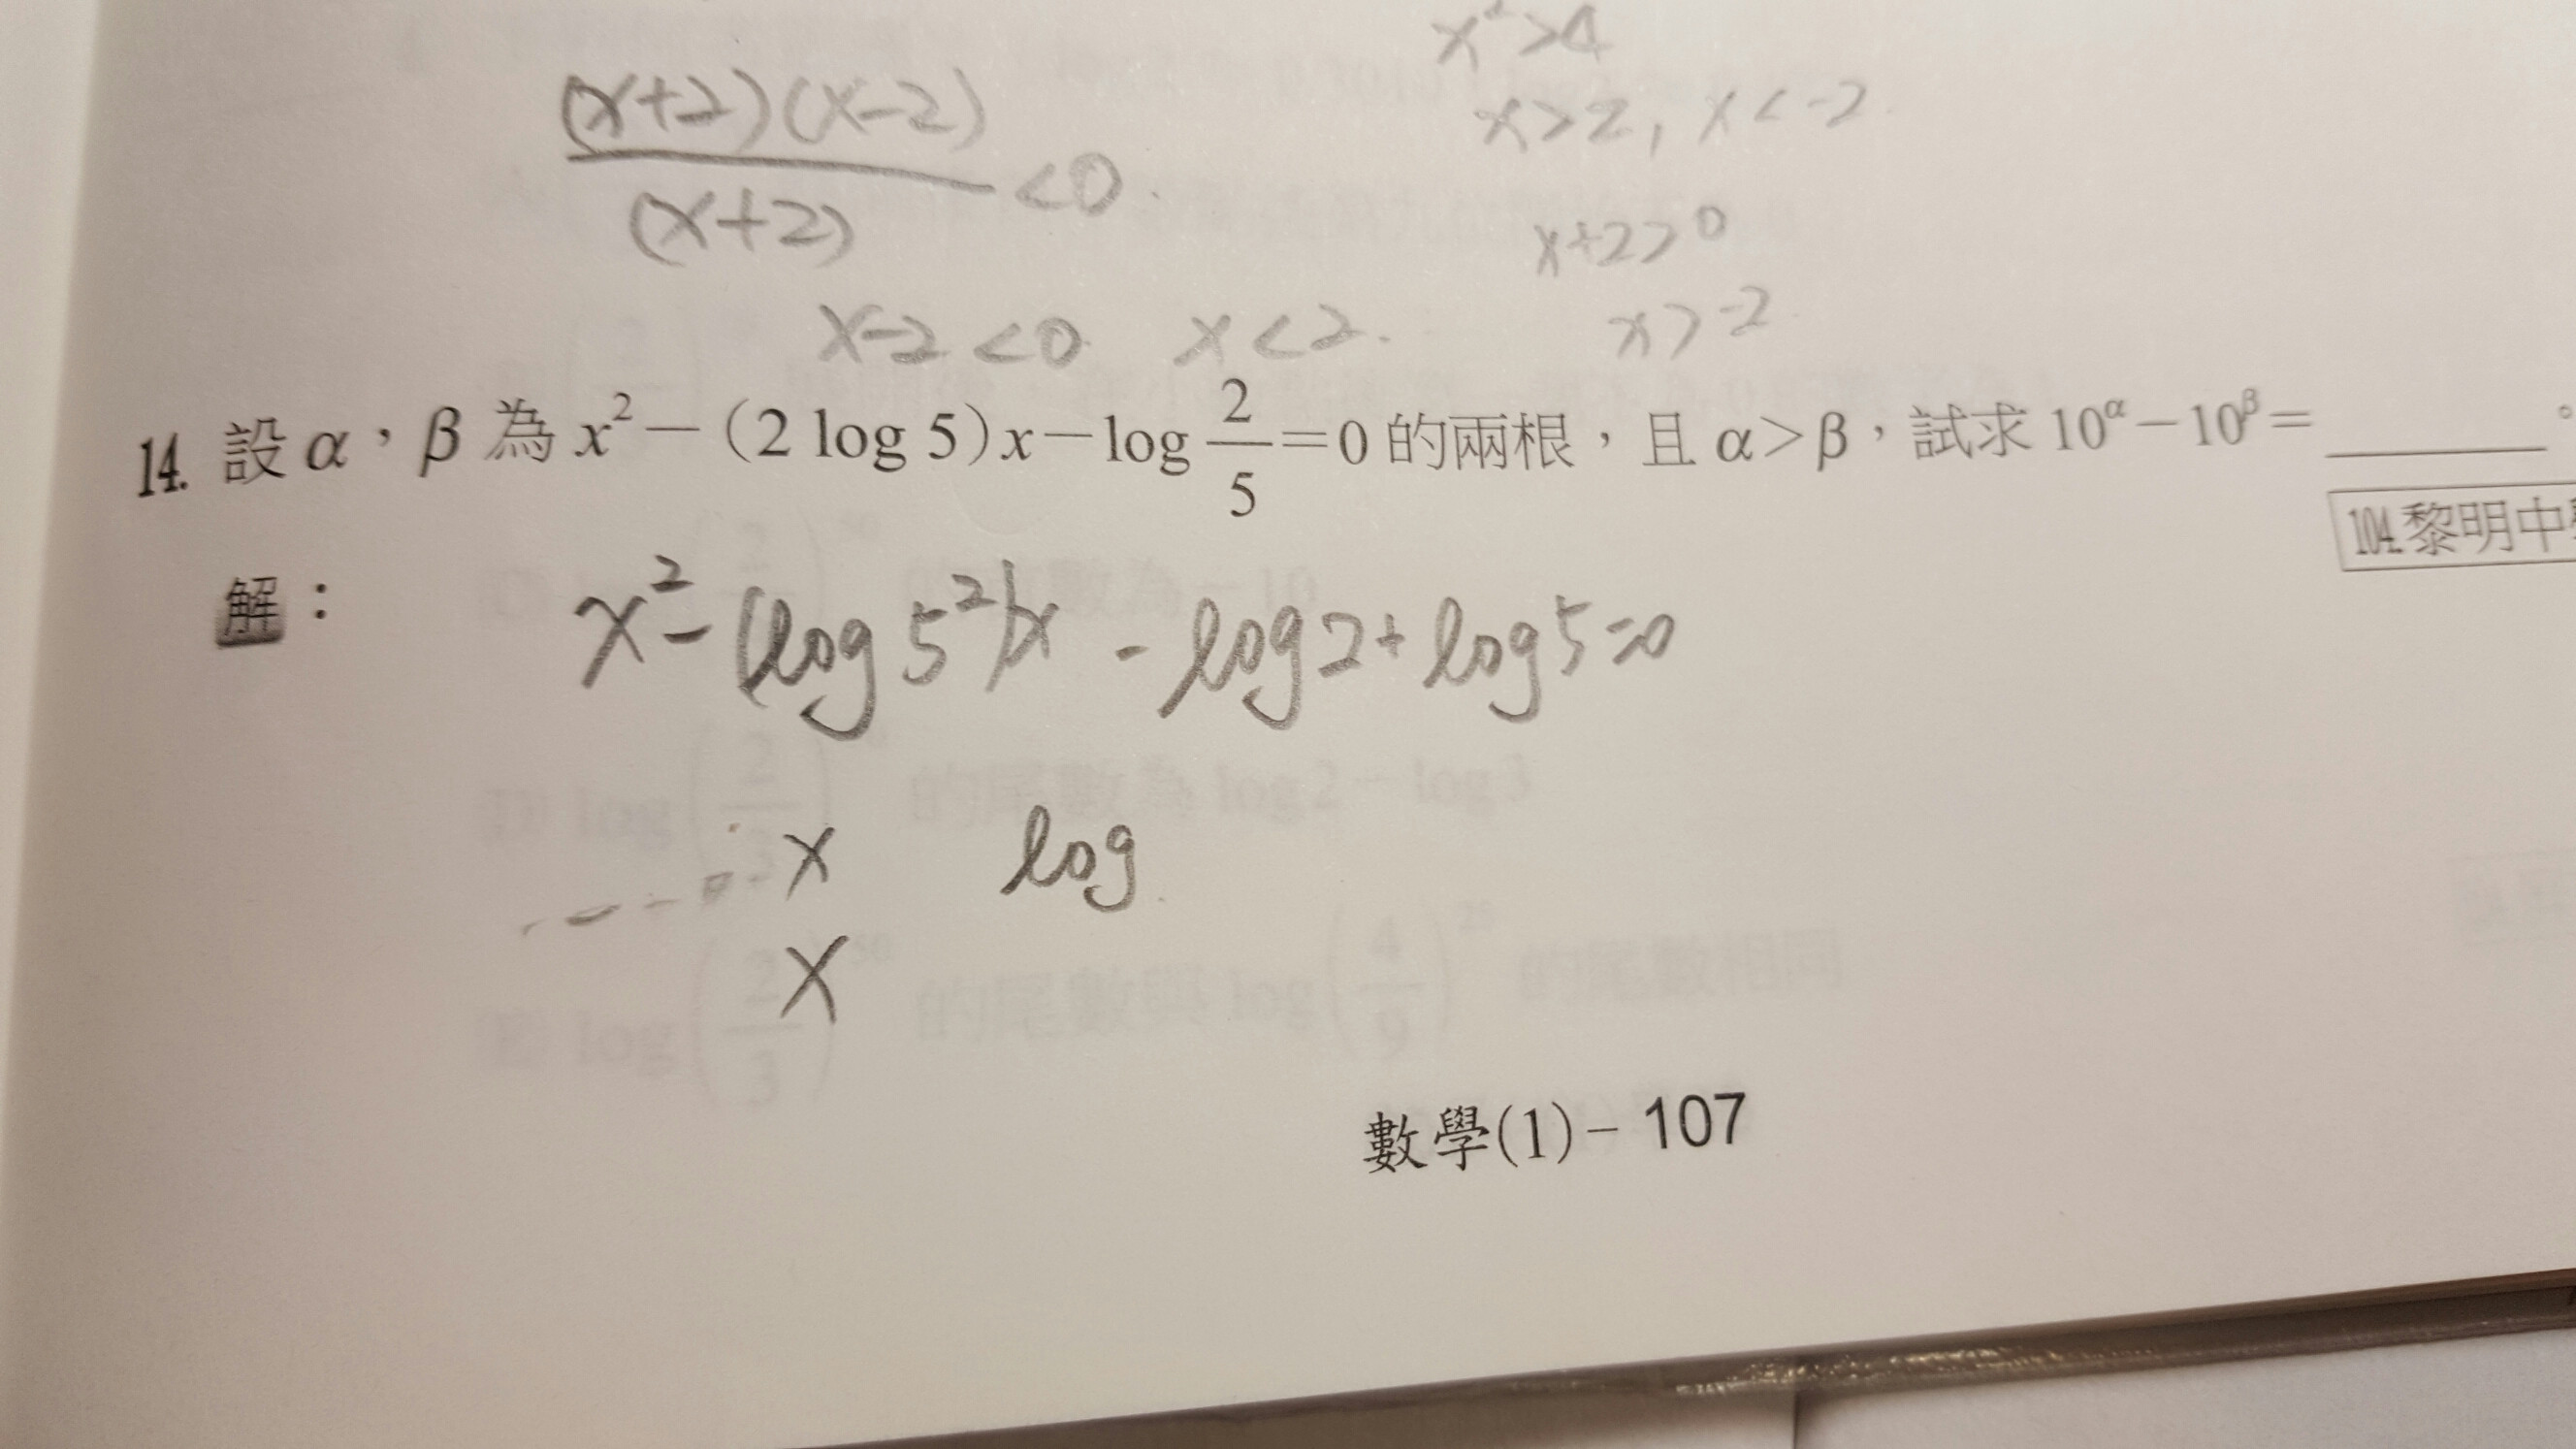 x²>4
(x+2)(x-2)/(x+2) <0
x>2, x<-2
x+2>0
x-2<0 x<2
x>-2
14. 設 α，β 為 x²－（2 log 5）x－log 2/5＝0 的兩根，且 α＞β，試求 10^α－10^β＝______。
104.黎明中
解：
x²-(log 5²)x - log 2 + log 5 = 0
x log
x
數學(1)－107